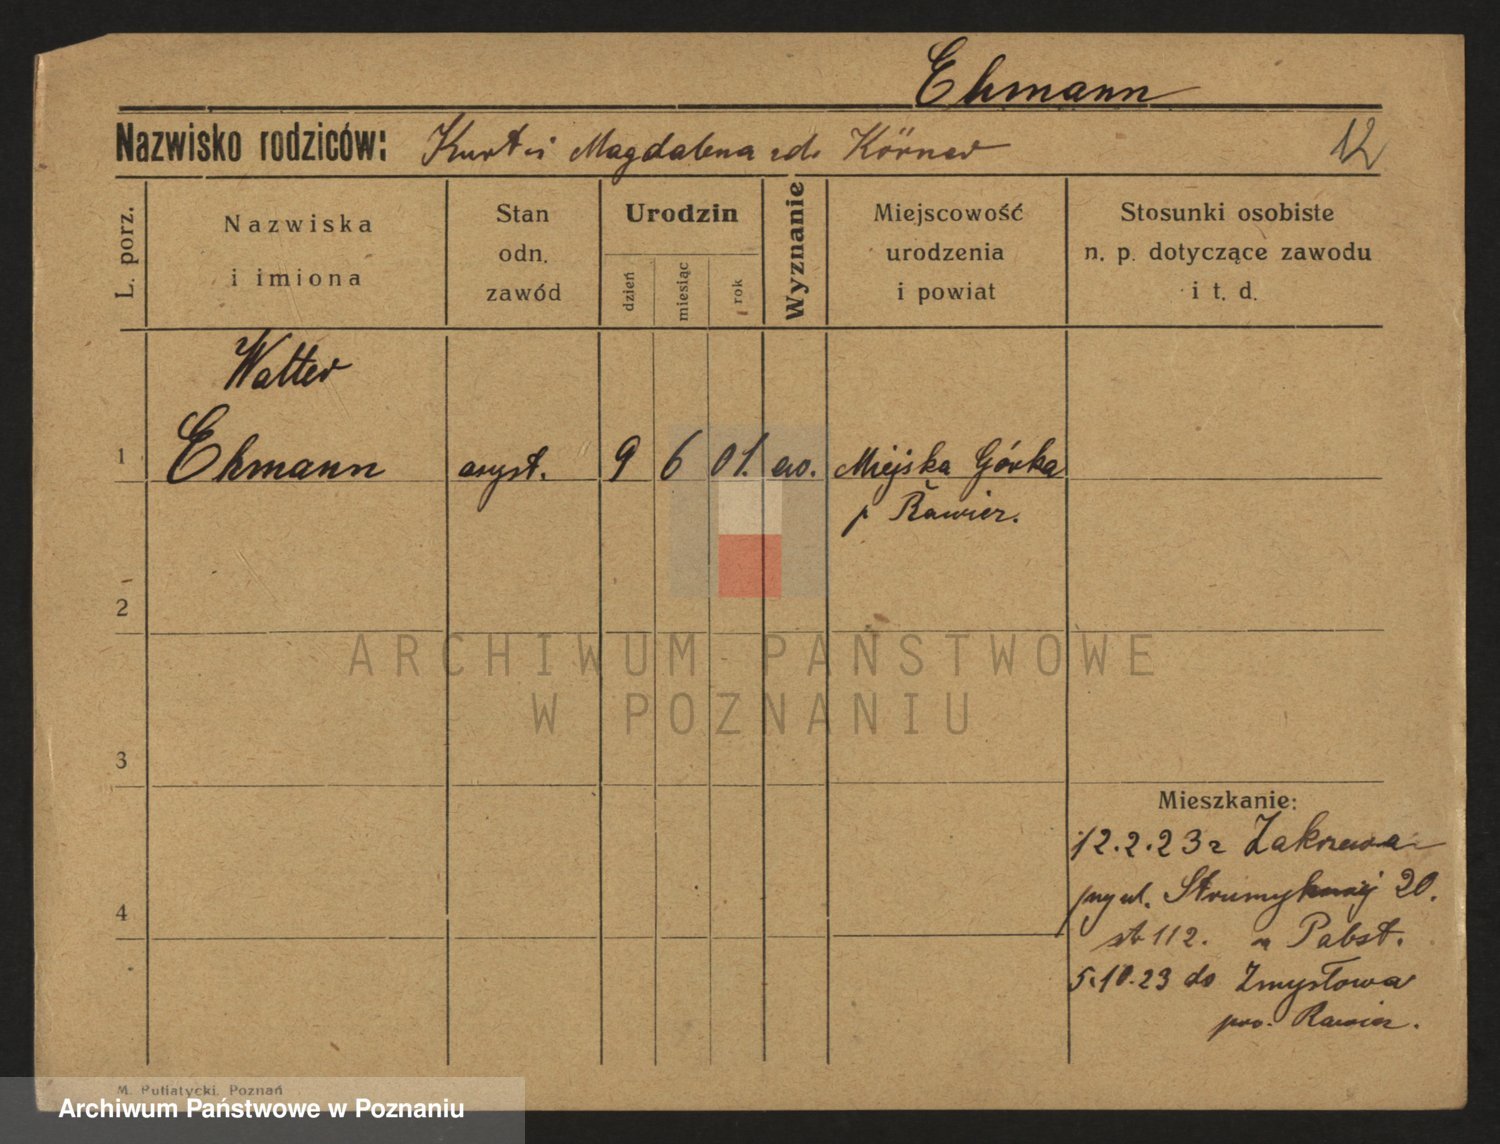 Ehmann
Nazwisko rodziców: Kurt i Magdalena zd. Körner
12
L. porz.
Nazwiska
i imiona
Stan
odn.
zawód
Urodzin
dzień
miesiąc
rok
Wyznanie
Miejscowość
urodzenia
i powiat
Stosunki osobiste
n. p. dotyczące zawodu
i t. d.
Walter
1 Ehmann asyst. 9 6 01. ew. Miejska Górka
p Rawicz.
2
3
Mieszkanie:
12.2.23 z Zakrzewa
przy ul. Strumykowej 20.
4
112. Pabst.
5.10.23 do Zmysłowa
pow. Rawicz.
M. Putiatycki, Poznań
ARCHIWUM PAŃSTWOWE
W POZNANIU
Archiwum Państwowe w Poznaniu